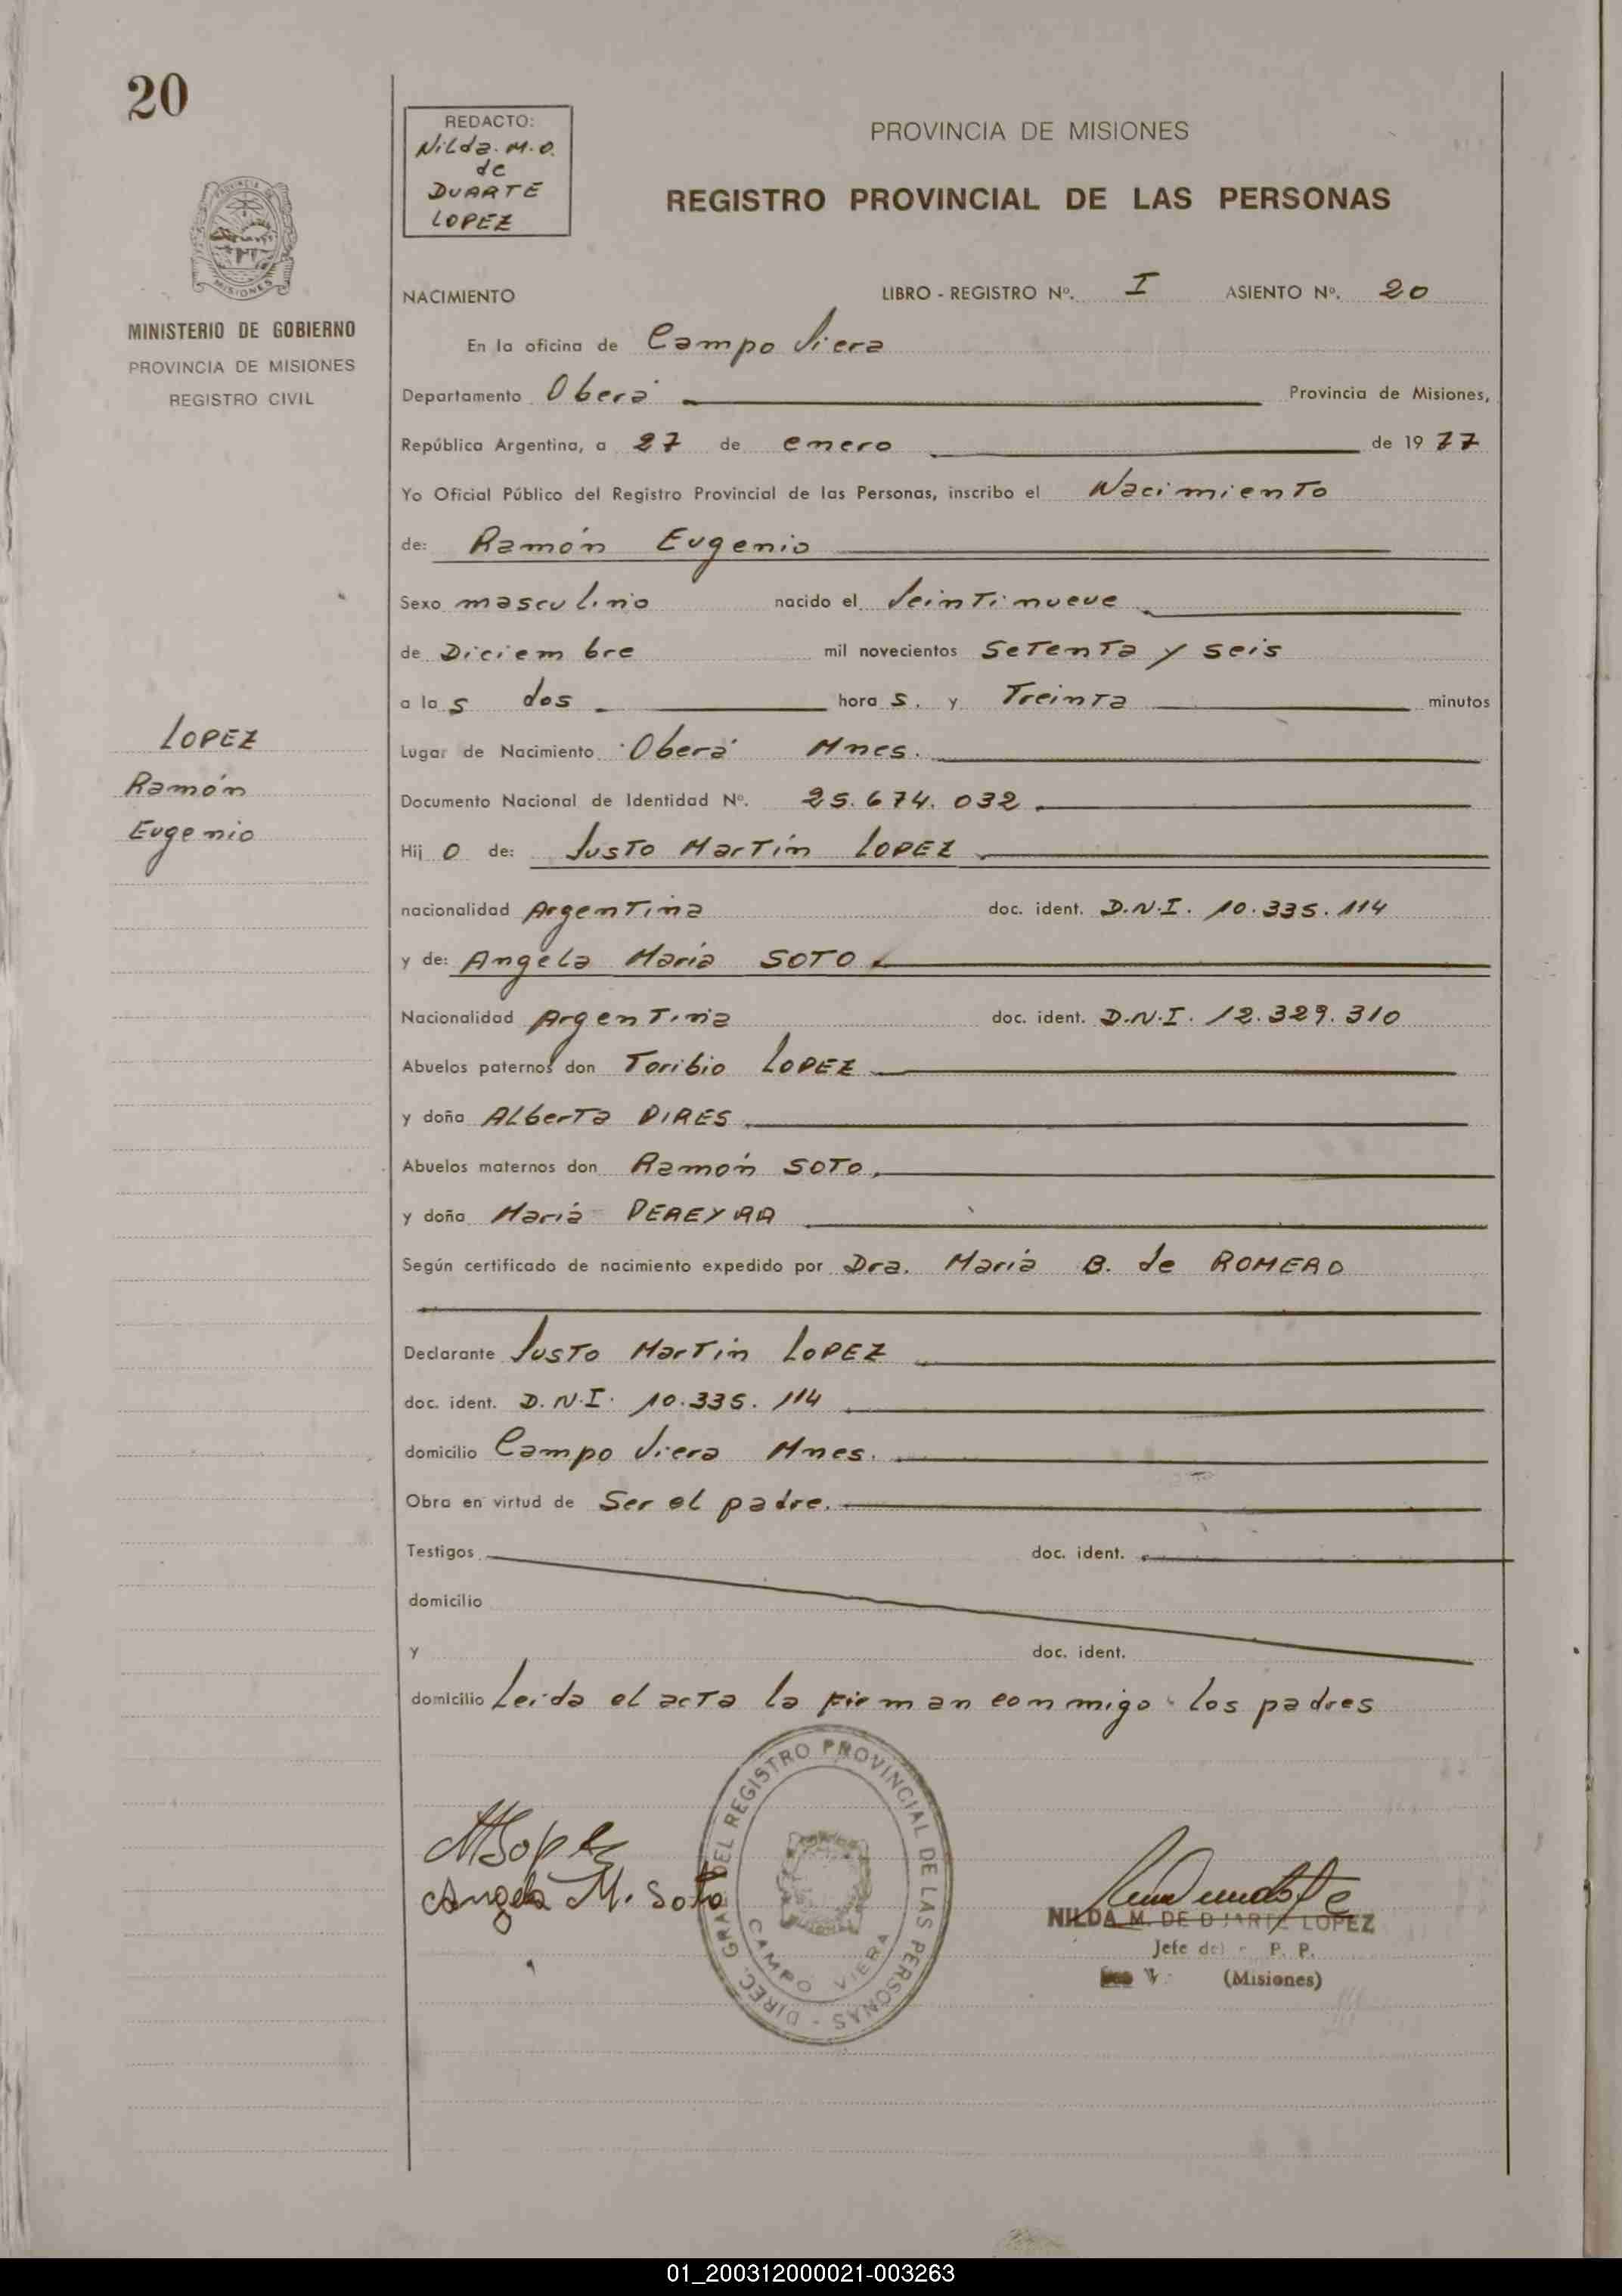 20
REDACTO:
Nilda. M. O.
de
DUARTE
LOPEZ
PROVINCIA DE MISIONES
REGISTRO PROVINCIAL DE LAS PERSONAS
MISIONES
MINISTERIO DE GOBIERNO
PROVINCIA DE MISIONES
REGISTRO CIVIL
NACIMIENTO LIBRO - REGISTRO Nº. I ASIENTO Nº. 20
En la oficina de Campo Viera
Departamento Oberá Provincia de Misiones,
República Argentina, a 27 de enero de 1977
Yo Oficial Público del Registro Provincial de las Personas, inscribo el Nacimiento
de: Ramón Eugenio
Sexo masculino nacido el Veintinueve
de Diciembre mil novecientos Setenta y seis
a las dos horas. y Treinta minutos
LOPEZ
Ramón
Eugenio
Lugar de Nacimiento Oberá Mnes.
Documento Nacional de Identidad Nº. 25.674.032
Hijo de: Justo Martín LOPEZ
nacionalidad Argentina doc. ident. D.N.I. 10.335.114
y de: Angela María SOTO
Nacionalidad Argentina doc. ident. D.N.I. 12.329.310
Abuelos paternos don Toribio LOPEZ
y doña Alberta PIRES
Abuelos maternos don Ramón SOTO
y doña María PEREYRA
Según certificado de nacimiento expedido por Dra. María B. de ROMERO
Declarante Justo Martín LOPEZ
doc. ident. D.N.I. 10.335.114
domicilio Campo Viera Mnes.
Obra en virtud de Ser el padre.
Testigos doc. ident.
domicilio
y doc. ident.
domicilio Leída el acta la firman conmigo los padres
Angela M. Soto
DIREC. GRAL DEL REGISTRO PROVINCIAL DE LAS PERSONAS -
CAMPO VIERA
NILDA M. DE DUARTE LOPEZ
Jefe del P. P.
(Misiones)
01_200312000021-003263